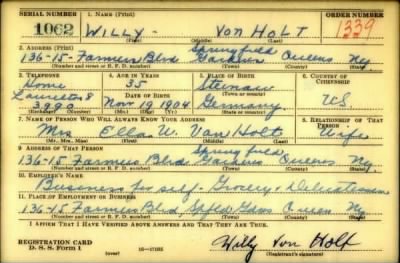 SERIAL NUMBER 1. NAME (Print) ORDER NUMBER
1062 WILLY - VON HOLT 1339
(First) (Middle) (Last)
2. ADDRESS (Print)
136-15- Farmers Blvd Springfield Gardens Queens Ny
(Number and street or R. F. D. number) (Town) (County) (State)
3. TELEPHONE 4. AGE IN YEARS 5. PLACE OF BIRTH 6. COUNTRY OF CITIZENSHIP
Home 35
Laurelton 8 DATE OF BIRTH
3990 Nov 19 1904 Germany US
(Exchange) (Number) (Mo.) (Day) (Yr.) (State or country)
7. NAME OF PERSON WHO WILL ALWAYS KNOW YOUR ADDRESS 8. RELATIONSHIP OF THAT PERSON
Mrs Ella W. Von Holt Wife
(Mr., Mrs., Miss) (First) (Middle) (Last)
9. ADDRESS OF THAT PERSON
136-15 Farmers Blvd. Springfield Gardens Queens Ny
(Number and street or R. F. D. number) (Town) (County) (State)
10. EMPLOYER'S NAME
Business for self - Grocery & Delicatessen
11. PLACE OF EMPLOYMENT OR BUSINESS
136-15 Farmers Blvd, Spfld Gdns Queens Ny
(Number and street or R. F. D. number) (Town) (County) (State)
I AFFIRM THAT I HAVE VERIFIED ABOVE ANSWERS AND THAT THEY ARE TRUE.
REGISTRATION CARD
D. S. S. Form 1 (over) 16-17105 Willy Von Holt
(Registrant's signature)